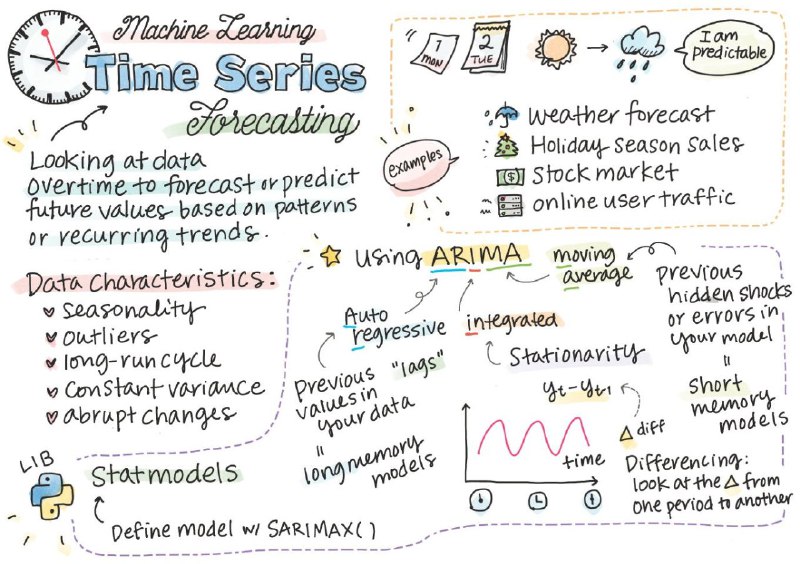 Machine Learning
Time Series
Forecasting
Looking at data
overtime to forecast or predict
future values based on patterns
or recurring trends.
1
MON
2
TUE
I am
predictable
examples
weather forecast
Holiday season sales
$
Stock market
online user traffic
Data Characteristics:
seasonality
outliers
long-run cycle
constant variance
abrupt changes
using ARIMA
Auto
regressive
Previous "lags"
values in
your data
=
long memory
models
integrated
Stationarity
yt-yt1
Δ diff
time
Differencing:
look at the Δ from
one period to another
moving
average
Previous
hidden shocks
or errors in
your model
=
short
memory
models
LIB
Statmodels
Define model w/ SARIMAX()